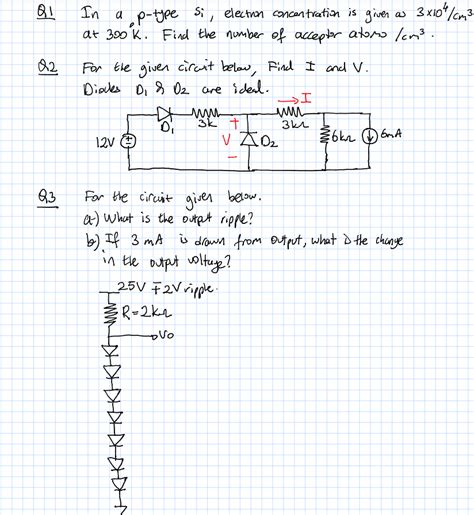 Q1 In a p-type Si, electron concentration is given as 3x10⁴/cm³
at 300 K. Find the number of acceptor atoms /cm³.
Q2 For the given circuit below, Find I and V.
Diodes D1 & D2 are ideal.
I
D1
3k
+
V
-
3kΩ
12V
D2
6kΩ
6mA
Q3 For the circuit given below.
a-) What is the output ripple?
b-) If 3 mA is drawn from output, what is the change
in the output voltage?
25V ∓2V ripple.
R=2kΩ
Vo